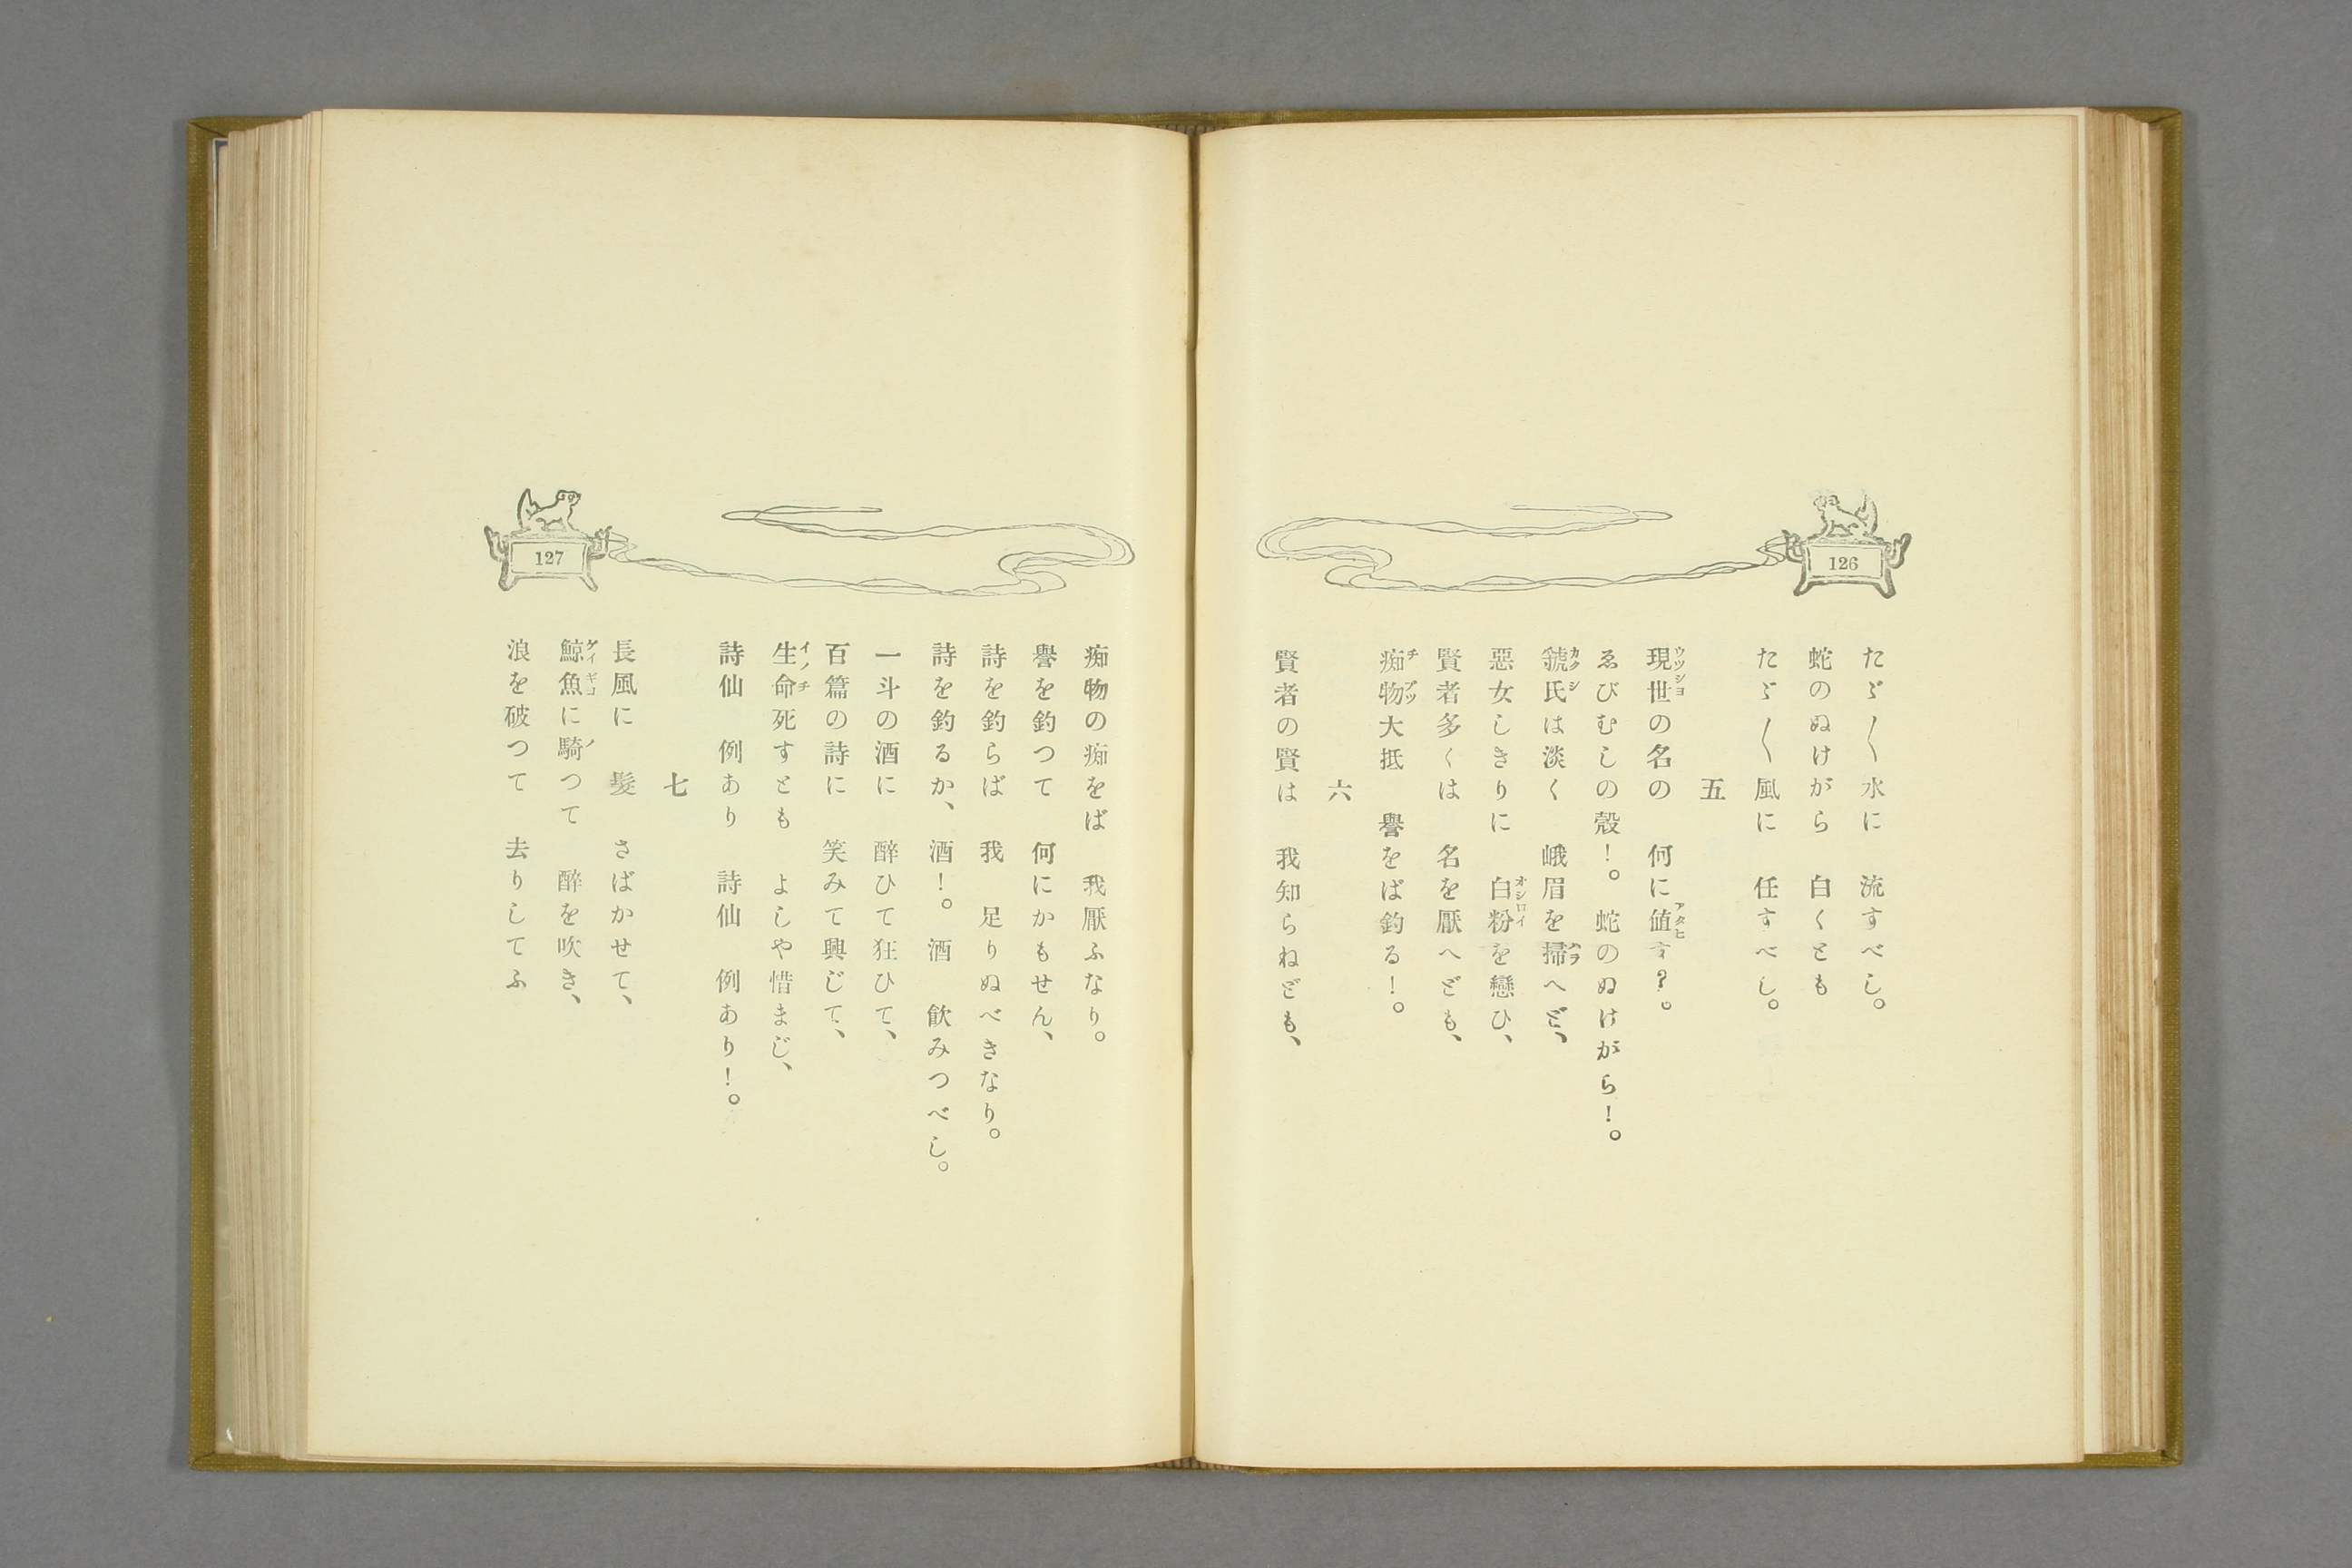 126
たゞ〳〵水に　流すべし。
蛇のぬけがら　白くとも
たゞ〳〵風に　任すべし。
五
現世の名の　何に値す?。
ゑびむしの殻!。蛇のぬけがら!。
虢氏は淡く　峨眉を掃へど、
惡女しきりに　白粉を戀ひ、
賢者多くは　名を厭へども、
痴物大抵　譽をば釣る!。
六
賢者の賢は　我知らねども、
127
痴物の痴をば　我厭ふなり。
譽を釣つて　何にかもせん、
詩を釣らば　我　足りぬべきなり。
詩を釣るか、酒!。酒　飮みつべし。
一斗の酒に　醉ひて狂ひて、
百篇の詩に　笑みて興じて、
生命死すとも　よしや惜まじ、
詩仙　例あり　詩仙　例あり!。
七
長風に　髮　さばかせて、
鯨魚に騎つて　醉を吹き、
浪を破つて　去りしてふ